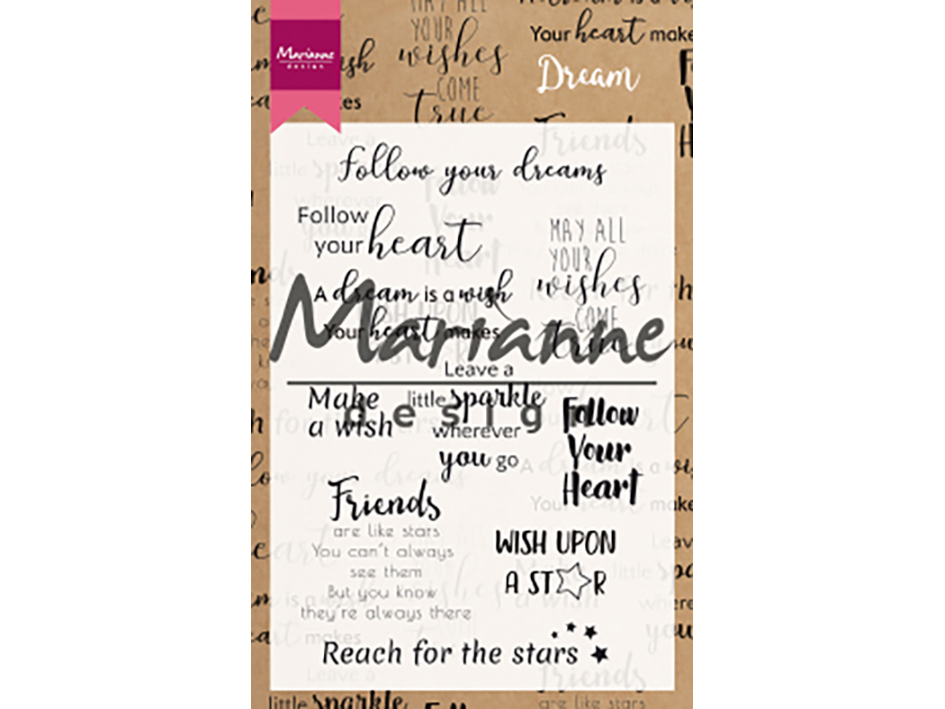 Marianne
design
MAY ALL
YOUR
wishes
COME
true
Your heart makes
Dream
Follow your dreams
Follow
your heart
MAY ALL
YOUR
wishes
COME
true
A dream is a wish
Your heart makes
Marianne
design
Leave a
little sparkle
wherever
you go
Make
a wish
Follow
Your
Heart
Friends
are like stars
You can't always
see them
But you know
they're always there
WISH UPON
A STAR
Reach for the stars
little sparkle